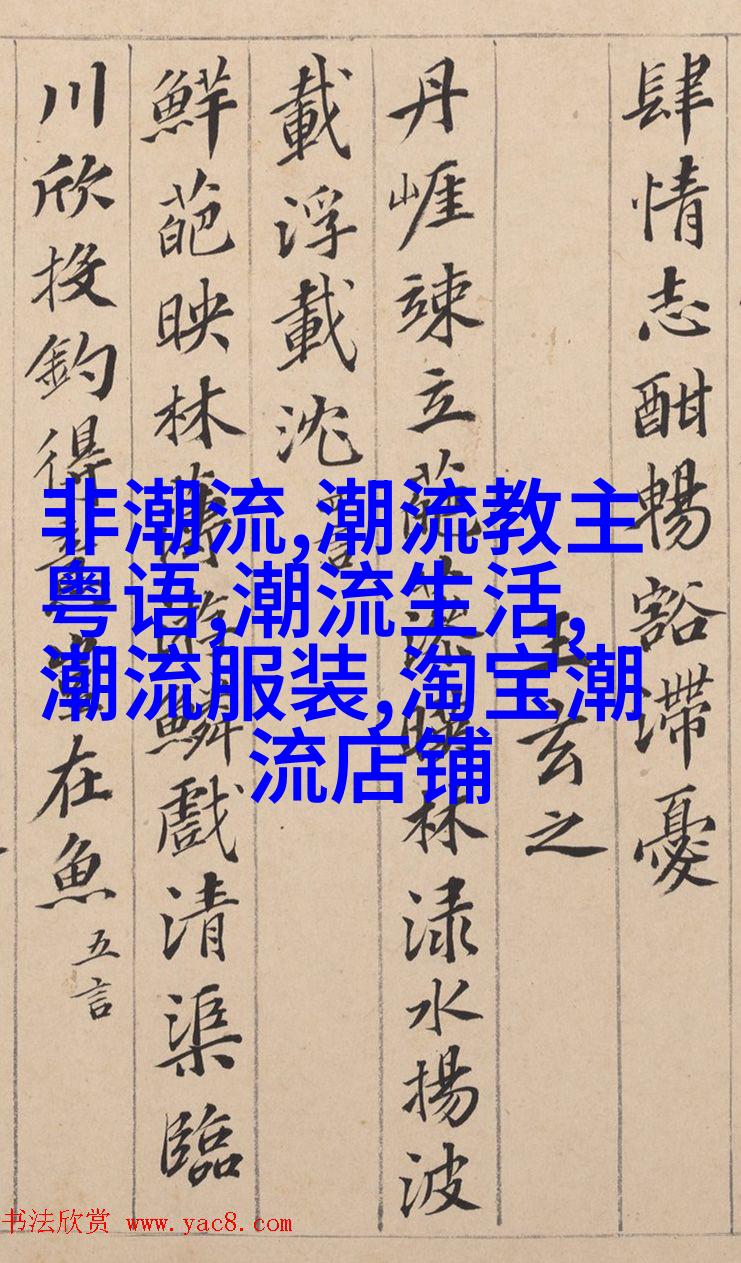 肆情志酣暢豁滯憂
王玄之
丹崕竦立葩藻暎林渌水揚波
載浮載沈 四言
鮮葩映林薄遊鱗戲清渠臨
川欣投釣得意豈在魚 五言
非潮流,潮流教主
粤语,潮流生活,
潮流服装,淘宝潮
流店铺
书法欣赏 www.yac8.com